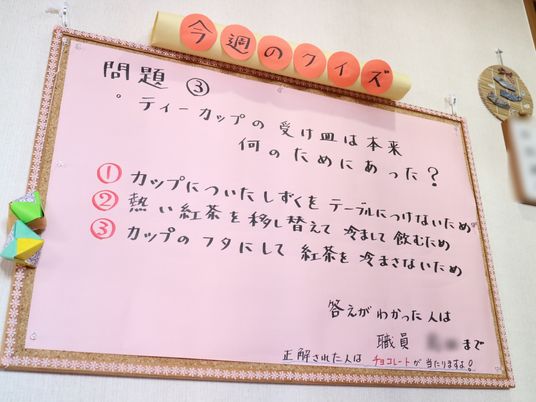 今週のクイズ
問題 ③
ティーカップの 受け皿は本来
何のためにあった?
① カップについたしずくを テーブルにつけないため
② 熱い紅茶を移し替えて 冷まして飲むため
③ カップのフタにして 紅茶を 冷まさないため
答えがわかった人は
職員 まで
正解された人は チョコレートが当たりますよ!